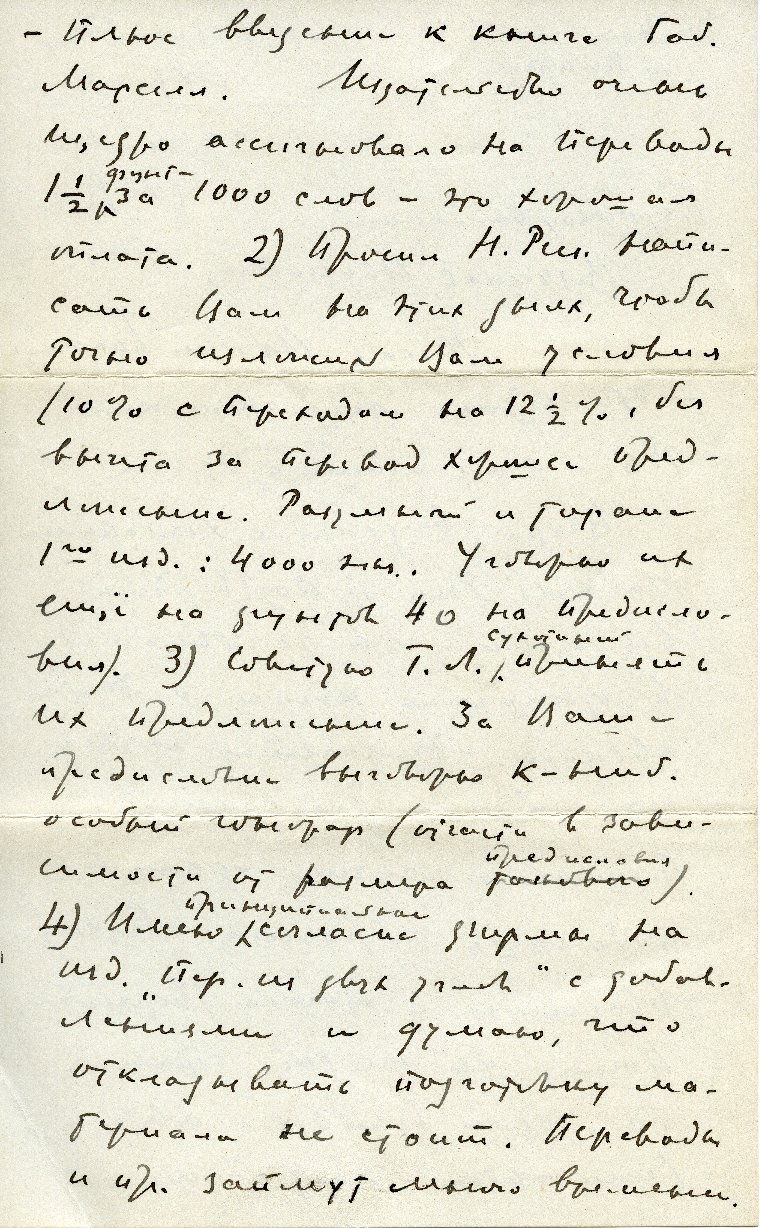 – Плюс введение к книге Габ.
Марселя. Издательство очень
щедро ассигновало на переводы
1 1/2 фунт– за 1000 слов – это хорошая
оплата. 2) Просил Н. Рих. напи-
сать Вам на этих днях, чтобы
точно изложил Вам условия
(10% с переходом на 12 1/2 %, без
вычета за перевод хорошее пред-
ложение. Разумный и тираж
1го изд.: 4000 экз.. Уговорю их
ещё на фунтов 40 на предисло-
вия). 3) Советую Т. Л., принять
их предложение. За Ваше
предисловие выговорю к-ниб.
особый гонорар (отчасти в зави-
симости от размера предисловия).
4) Имею принципиальное согласие фирмы на
изд. "Пер. из двух углов" с добав-
лениями и думаю, что
откладывать подготовку ма-
териала не стоит. Переводы
и пр. займут много времени.